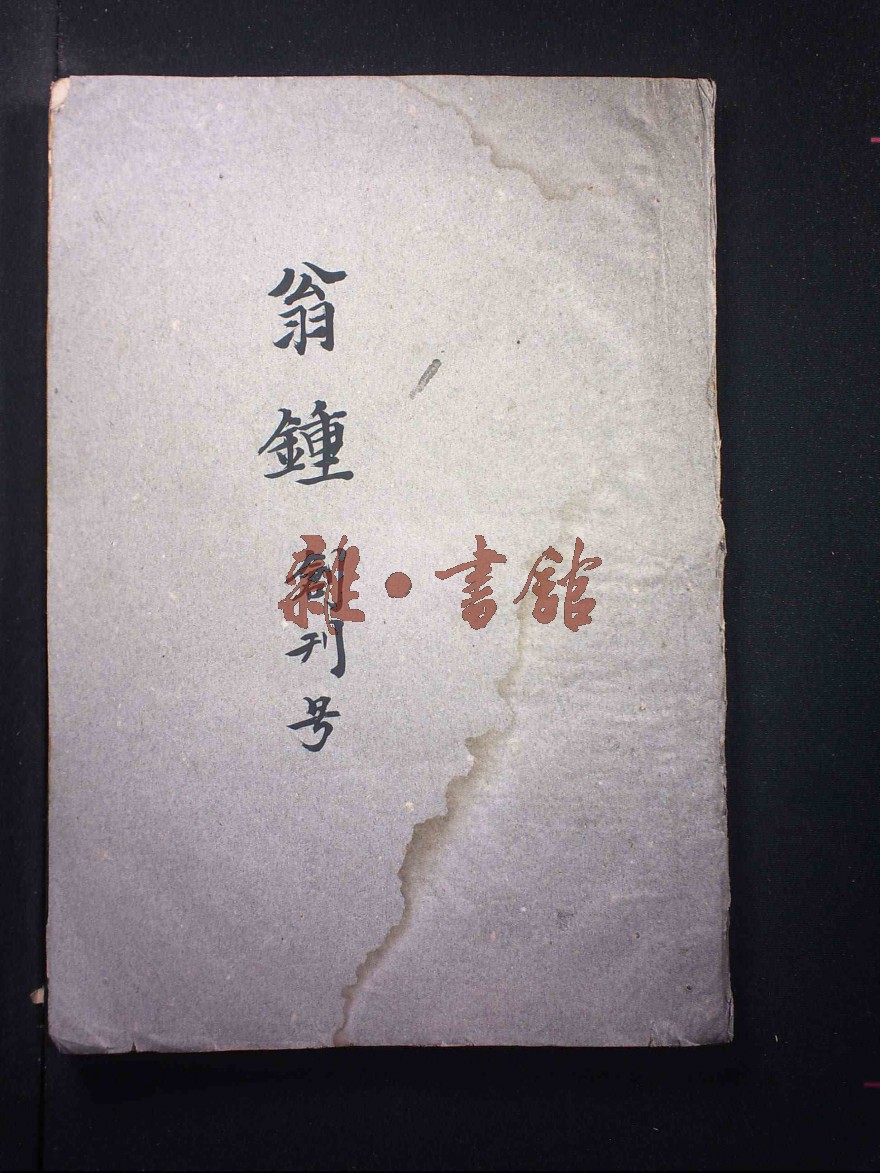 翁鍾
創刊号
雜·書館